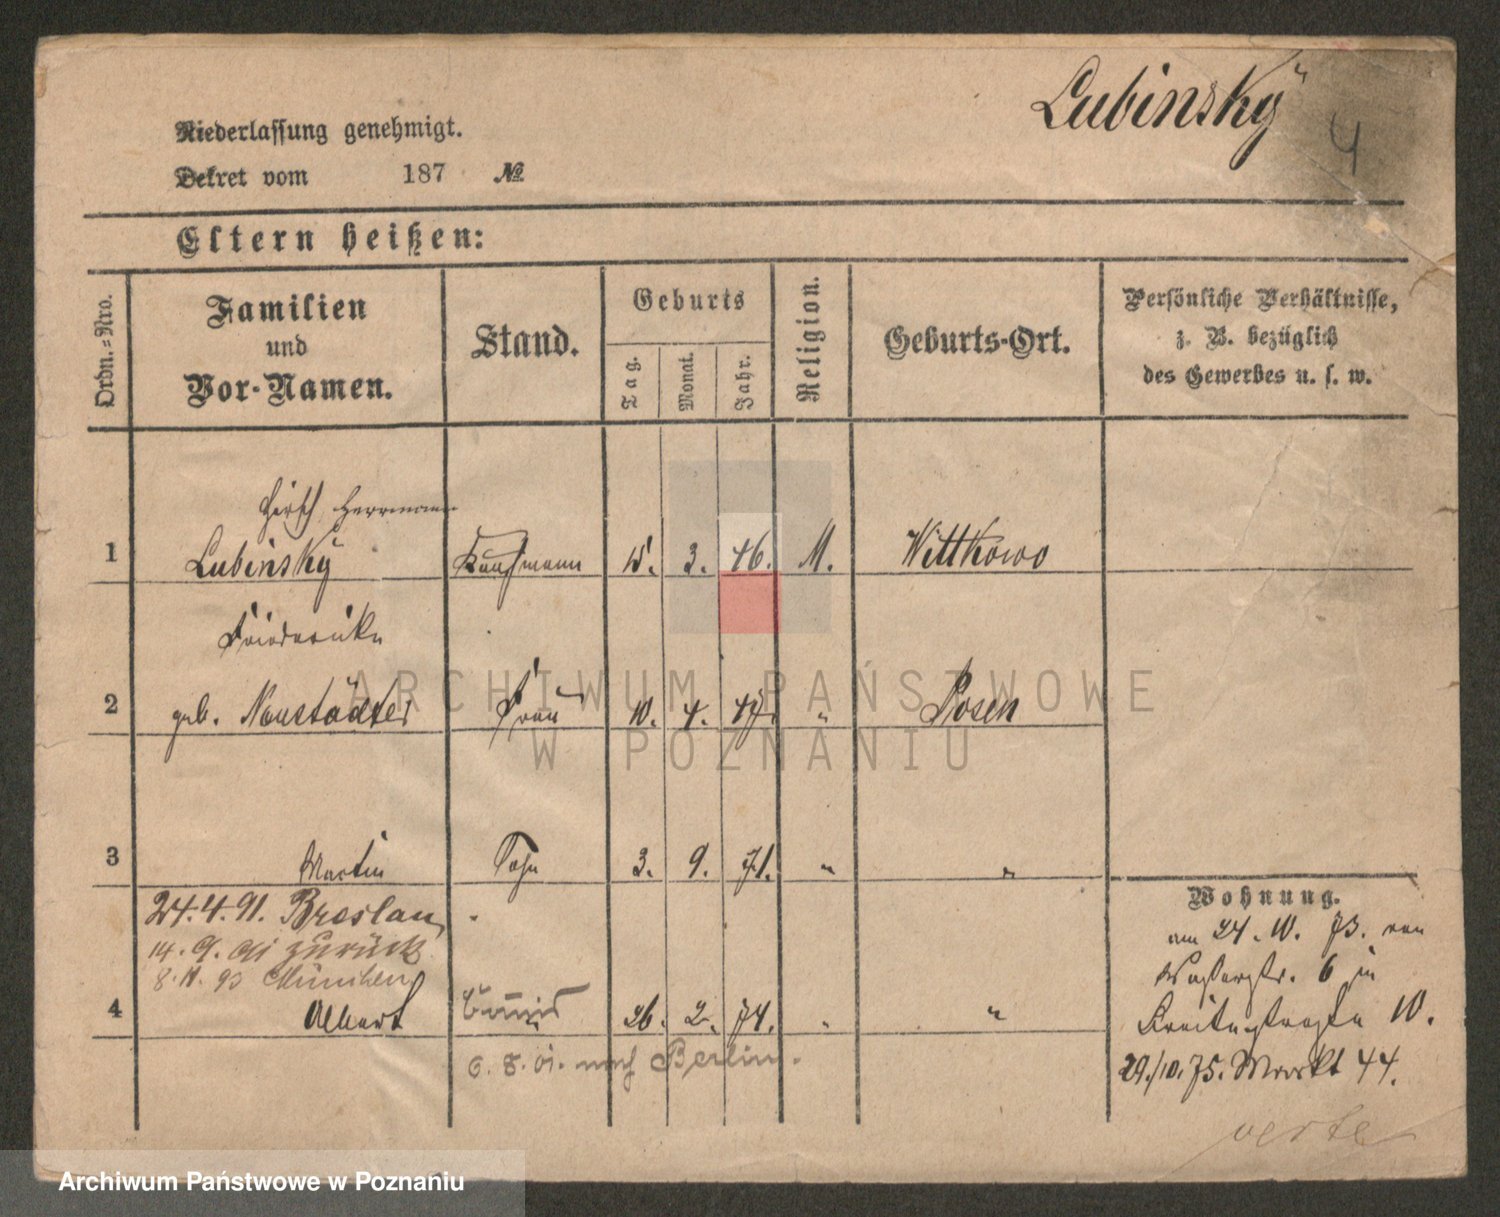 Lubinsky
4
Niederlassung genehmigt.
Dekret vom 187 №
Eltern heißen:
Ordn.=Nro.
Familien
und
Vor-Namen.
Stand.
Geburts
Tag.
Monat.
Jahr.
Religion.
Geburts-Ort.
Persönliche Verhältnisse,
z. B. bezüglich
des Gewerbes u. s. w.
Hirsch Herrmann
1 Lubinsky Kaufmann 15. 3. 46. M. Wittkowo
Friederike
2 geb. Neustädter Frau 10. 4. 47. " Posen
3 Martin Sohn 3. 9. 71. " "
24.4.91. Breslau
14.9.91 zurück
8.11.93 München
4 Albert 26. 2. 74. " "
6.8.01. nach Berlin.
Wohnung.
am 24.10.73. von
6 in
10.
29./10.75. Markt 44.
verte
ARCHIWUM PAŃSTWOWE
W POZNANIU
Archiwum Państwowe w Poznaniu